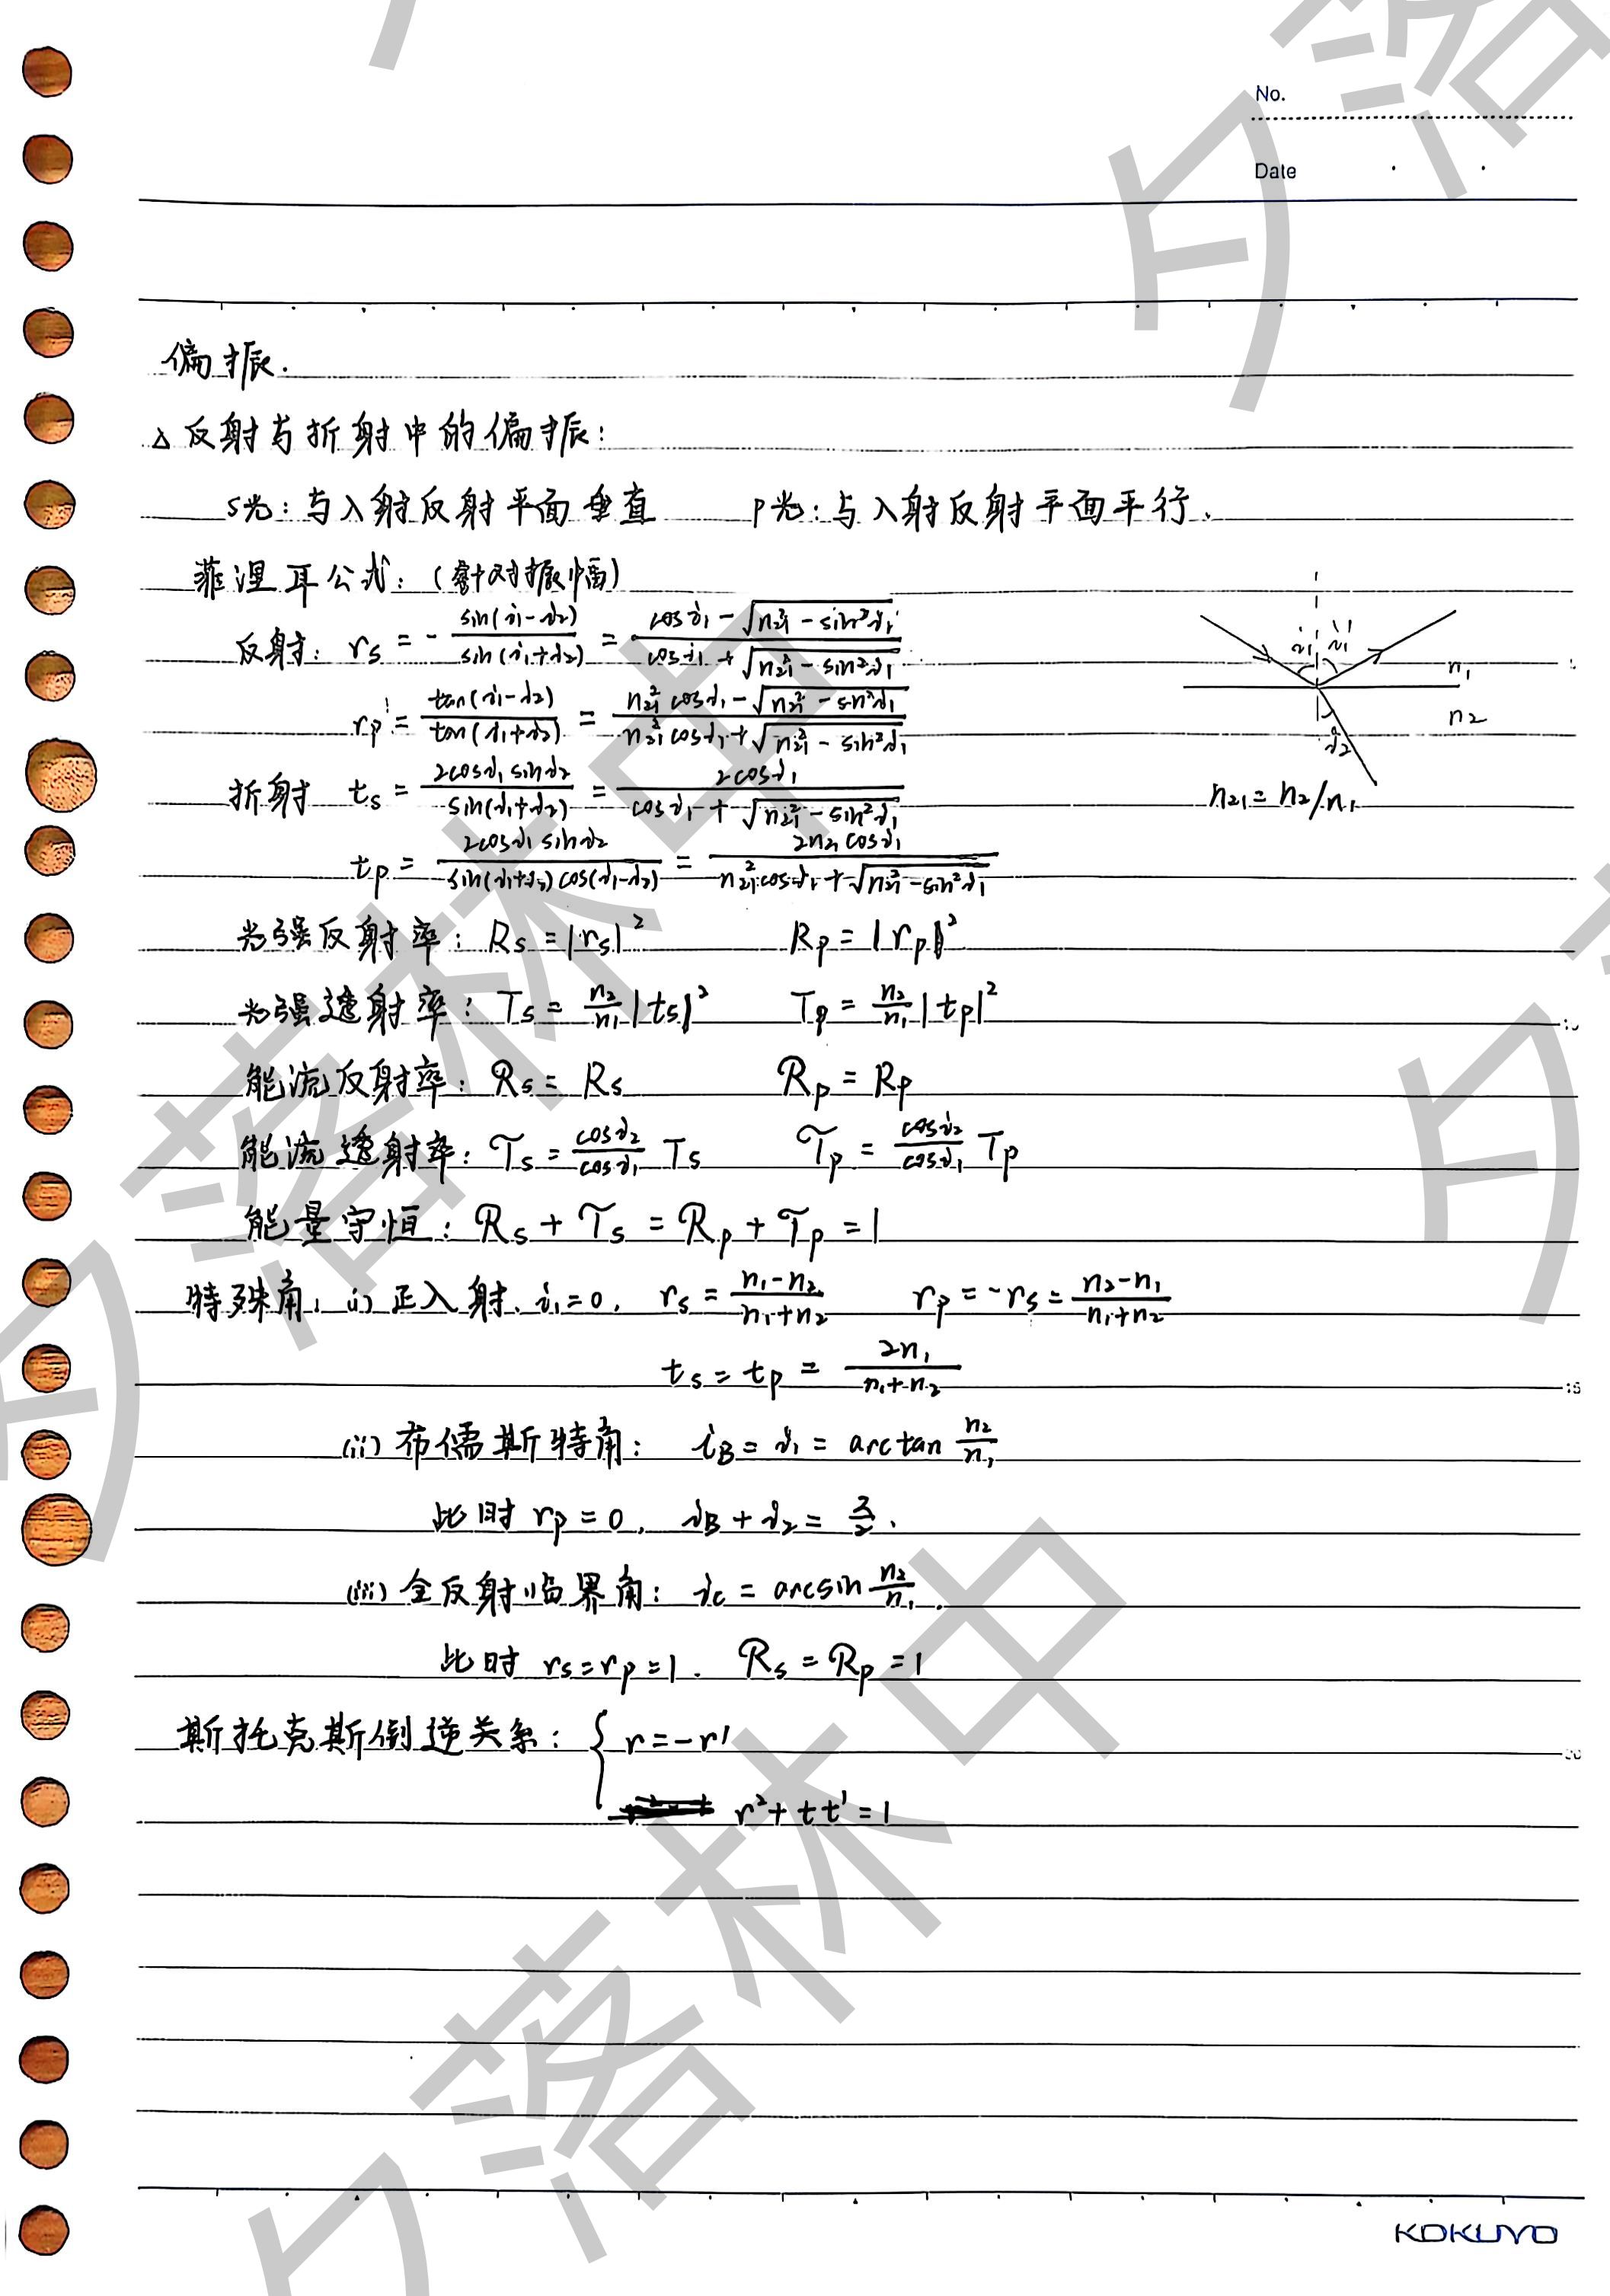 No.
Date
偏振.
△ 反射与折射中的偏振:
s光: 与入射反射平面垂直 p光: 与入射反射平面平行.
菲涅耳公式: (针对振幅)
反射: r_s = - sin(i₁-i₂)/sin(i₁+i₂) = (cos i₁ - √(n₂₁² - sin² i₁))/(cos i₁ + √(n₂₁² - sin² i₁))
r_p = tan(i₁-i₂)/tan(i₁+i₂) = (n₂₁² cos i₁ - √(n₂₁² - sin² i₁))/(n₂₁² cos i₁ + √(n₂₁² - sin² i₁))
折射 t_s = 2cos i₁ sin i₂/sin(i₁+i₂) = 2cos i₁/(cos i₁ + √(n₂₁² - sin² i₁))
t_p = 2cos i₁ sin i₂/(sin(i₁+i₂) cos(i₁-i₂)) = 2n₂₁ cos i₁/(n₂₁² cos i₁ + √(n₂₁² - sin² i₁))
i₁ i₁'
n₁
n₂
i₂
n₂₁ = n₂/n₁
光强反射率: R_s = |r_s|² R_p = |r_p|²
光强透射率: T_s = n₂/n₁ |t_s|² T_p = n₂/n₁ |t_p|²
能流反射率: ℛ_s = R_s ℛ_p = R_p
能流透射率: 𝒯_s = cos i₂/cos i₁ T_s 𝒯_p = cos i₂/cos i₁ T_p
能量守恒: ℛ_s + 𝒯_s = ℛ_p + 𝒯_p = 1
特殊角: (i) 正入射. i₁=0. r_s = (n₁-n₂)/(n₁+n₂) r_p = -r_s = (n₂-n₁)/(n₁+n₂)
t_s = t_p = 2n₁/(n₁+n₂)
(ii) 布儒斯特角: i_B = i₁ = arctan n₂/n₁
此时 r_p = 0, i_B + i₂ = π/2.
(iii) 全反射临界角: i_c = arcsin n₂/n₁.
此时 r_s = r_p = 1. ℛ_s = ℛ_p = 1
斯托克斯倒逆关系: { r = -r'
r² + tt' = 1
KOKUYO
夕落林中
夕落林中